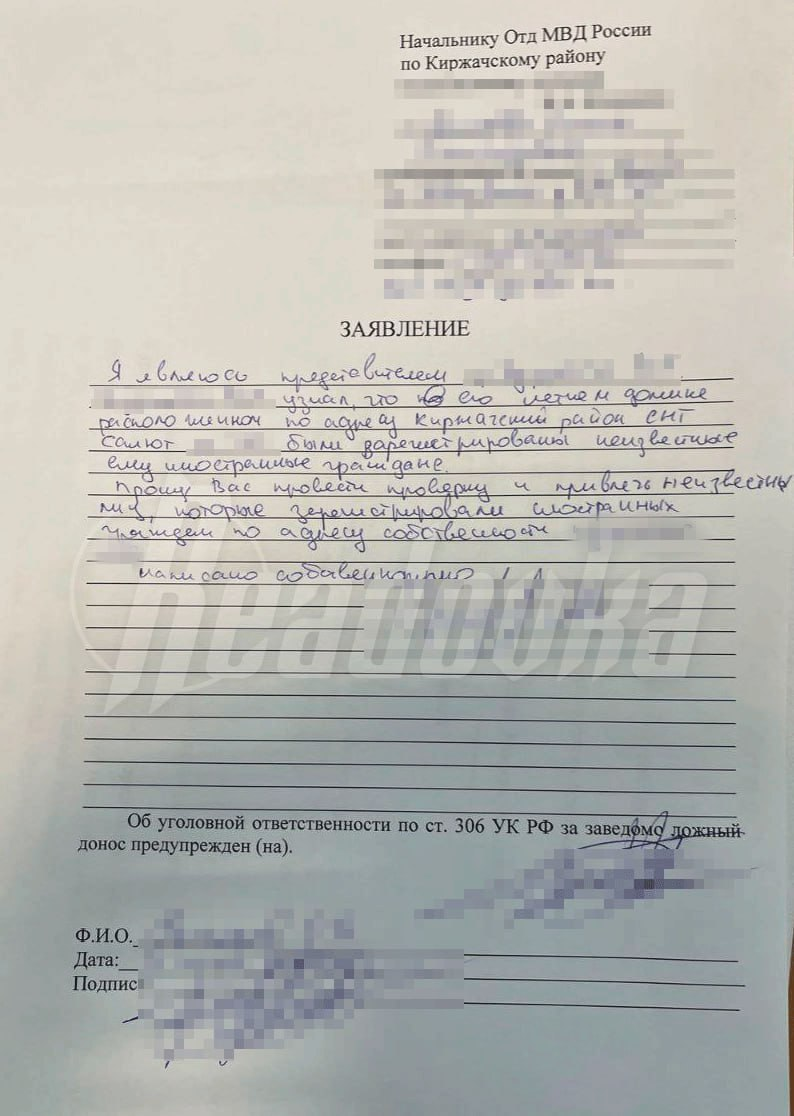 Начальнику Отд МВД России
по Киржачскому району
ЗАЯВЛЕНИЕ
Я являюсь представителем
узнал, что в его летнем домике
расположенном по адресу Киржачский район СНТ
Салют были зарегистрированы неизвестные
ему иностранные граждане.
Прошу Вас провести проверку и привлечь неизвестных
лиц, которые зарегистрировали иностранных
граждан по адресу собственности
написано собственноручно
Readovka
Об уголовной ответственности по ст. 306 УК РФ за заведомо ложный
донос предупрежден (на).
Ф.И.О.
Дата:
Подпис